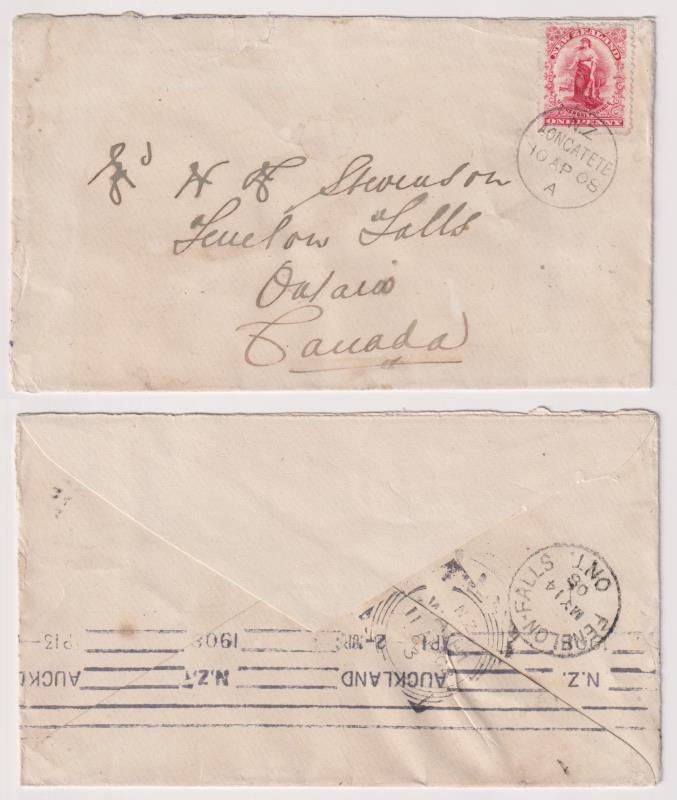 NEW ZEALAND
ONE PENNY
N.Z
AONGATETE
10 AP 08
A
H H Stevenson
Fenelon Falls
Ontario
Canada
FENELON-FALLS ONT.
MY 14
08
N.Z
11
1908
AP 13
2-
1908
AUCKLAND
N.Z.
AUCKLAND
N.Z.